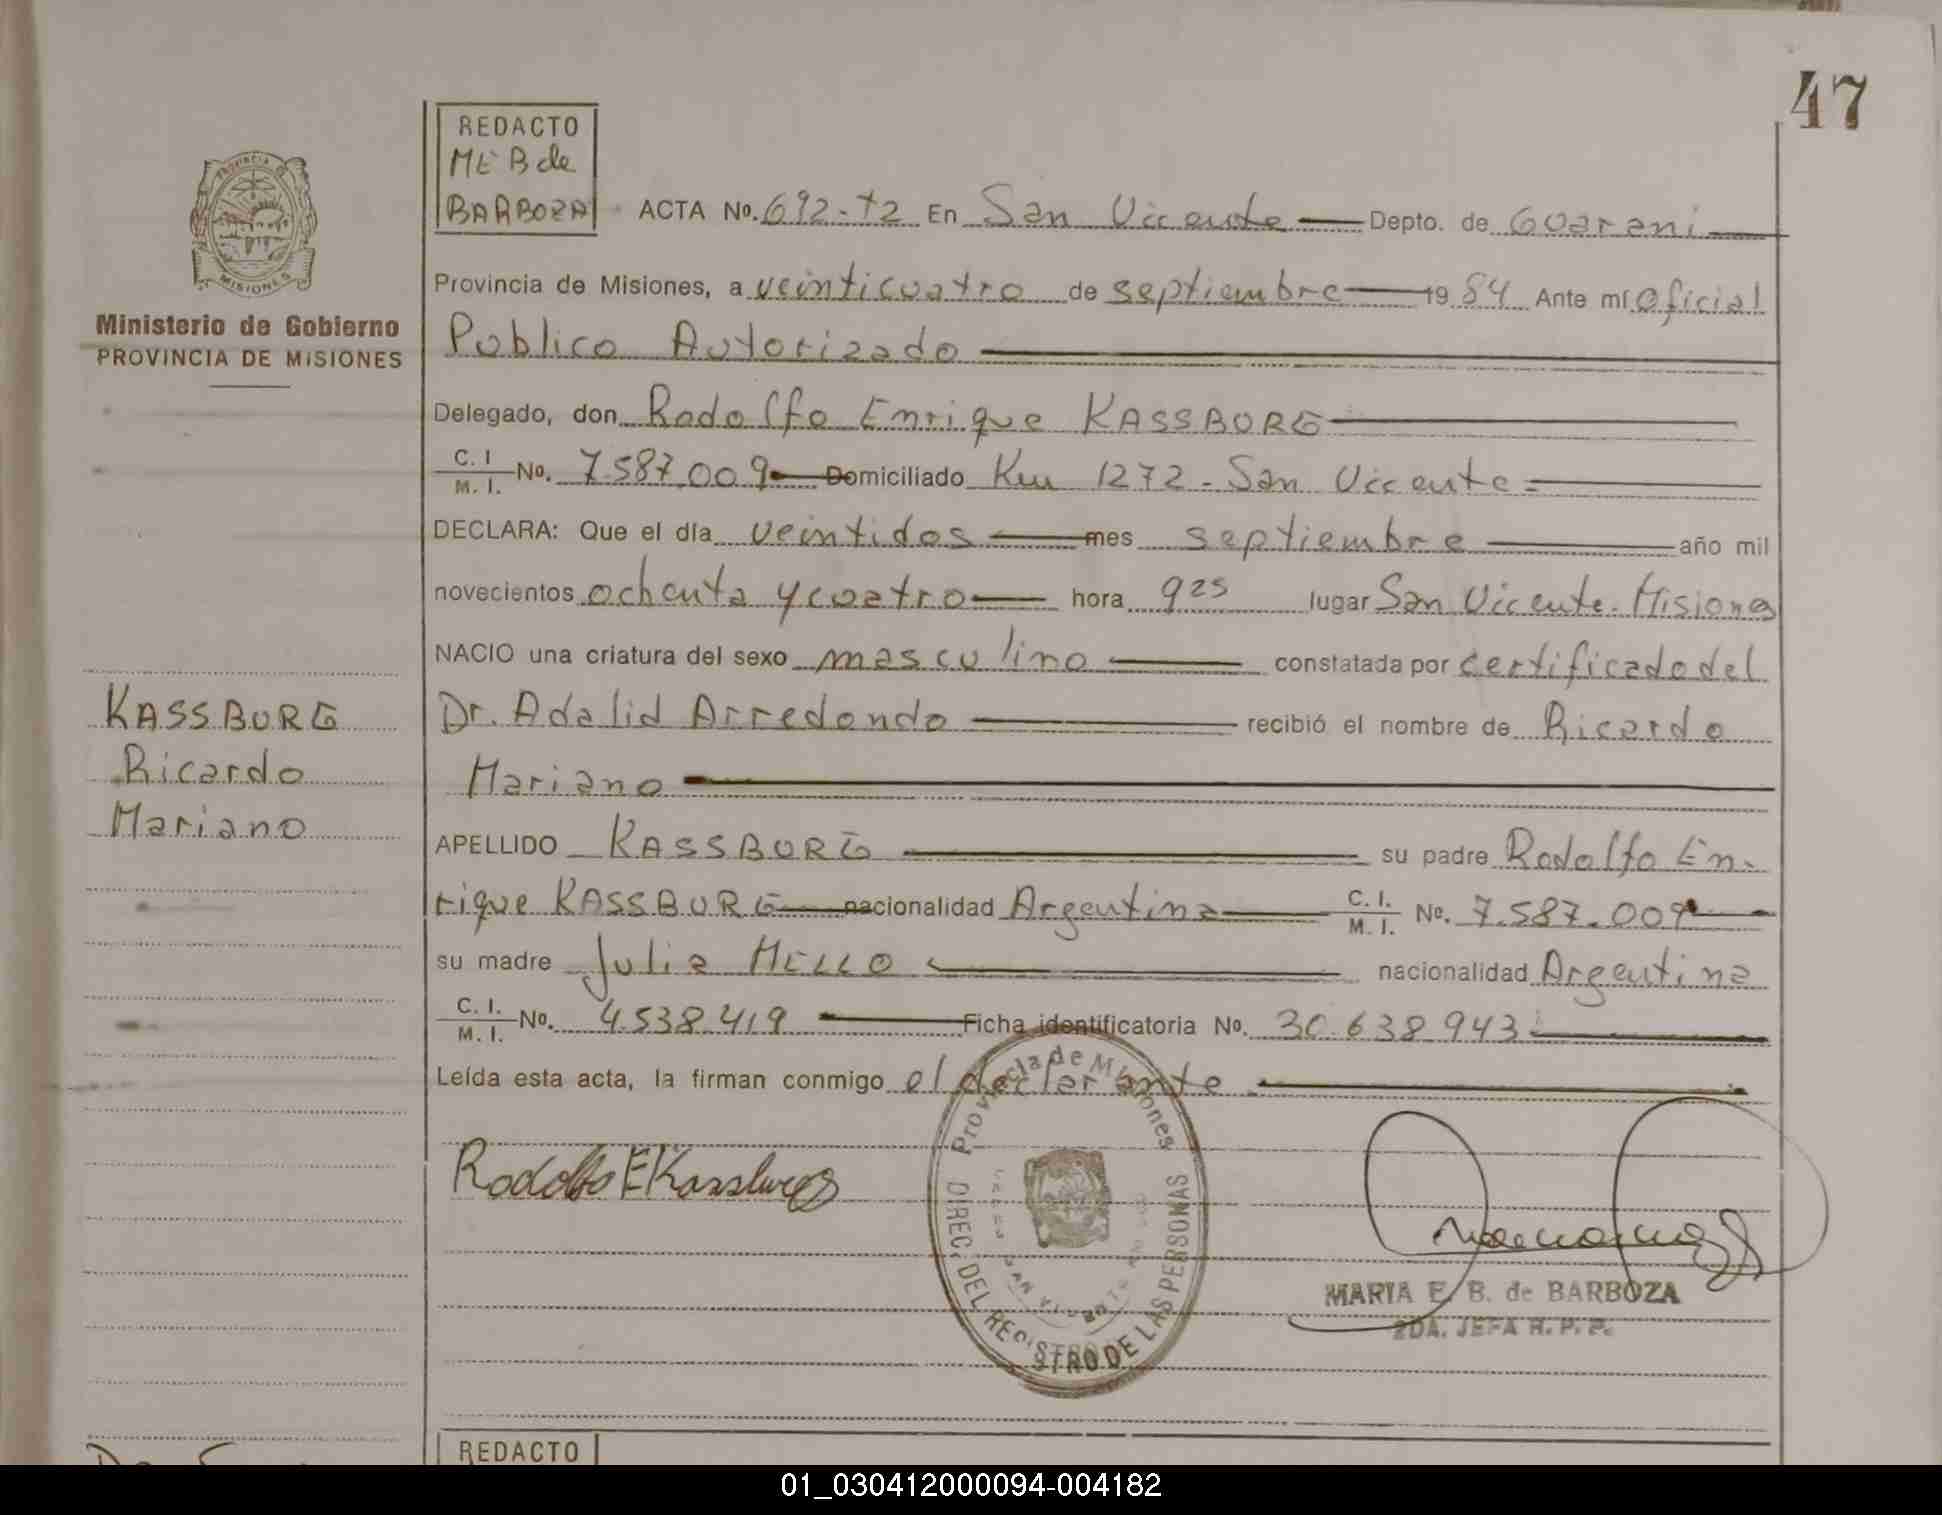 47
REDACTO
ME B de
BARBOZA
PROVINCIA DE
MISIONES
Ministerio de Gobierno
PROVINCIA DE MISIONES
ACTA No. 692-T2 En San Vicente Depto. de Guarani
Provincia de Misiones, a veinticuatro de septiembre 1984 Ante mí Oficial
Publico Autorizado
Delegado, don Rodolfo Enrique KASSBURG
C. I / M. I. No. 7.587.009 Domiciliado Km 1272 - San Vicente
DECLARA: Que el día veintidos mes septiembre año mil
novecientos ochenta y cuatro hora 9 25 lugar San Vicente. Misiones
NACIO una criatura del sexo masculino constatada por certificado del
Dr. Adalid Arredondo recibió el nombre de Ricardo
Mariano
KASSBURG
Ricardo
Mariano
APELLIDO KASSBURG su padre Rodolfo En-
rique KASSBURG nacionalidad Argentina C. I. / M. I. No. 7.587.009
su madre Julia MELLO nacionalidad Argentina
C. I. / M. I. No. 4.538.419 Ficha identificatoria No. 30.638.943
Leída esta acta, la firman conmigo el declarante
Rodolfo E Kassburg
Provincia de Misiones
DIREC. DEL REGISTRO DE LAS PERSONAS
MARIA E. B. de BARBOZA
2DA. JEFA R. P. P.
REDACTO
01_030412000094-004182